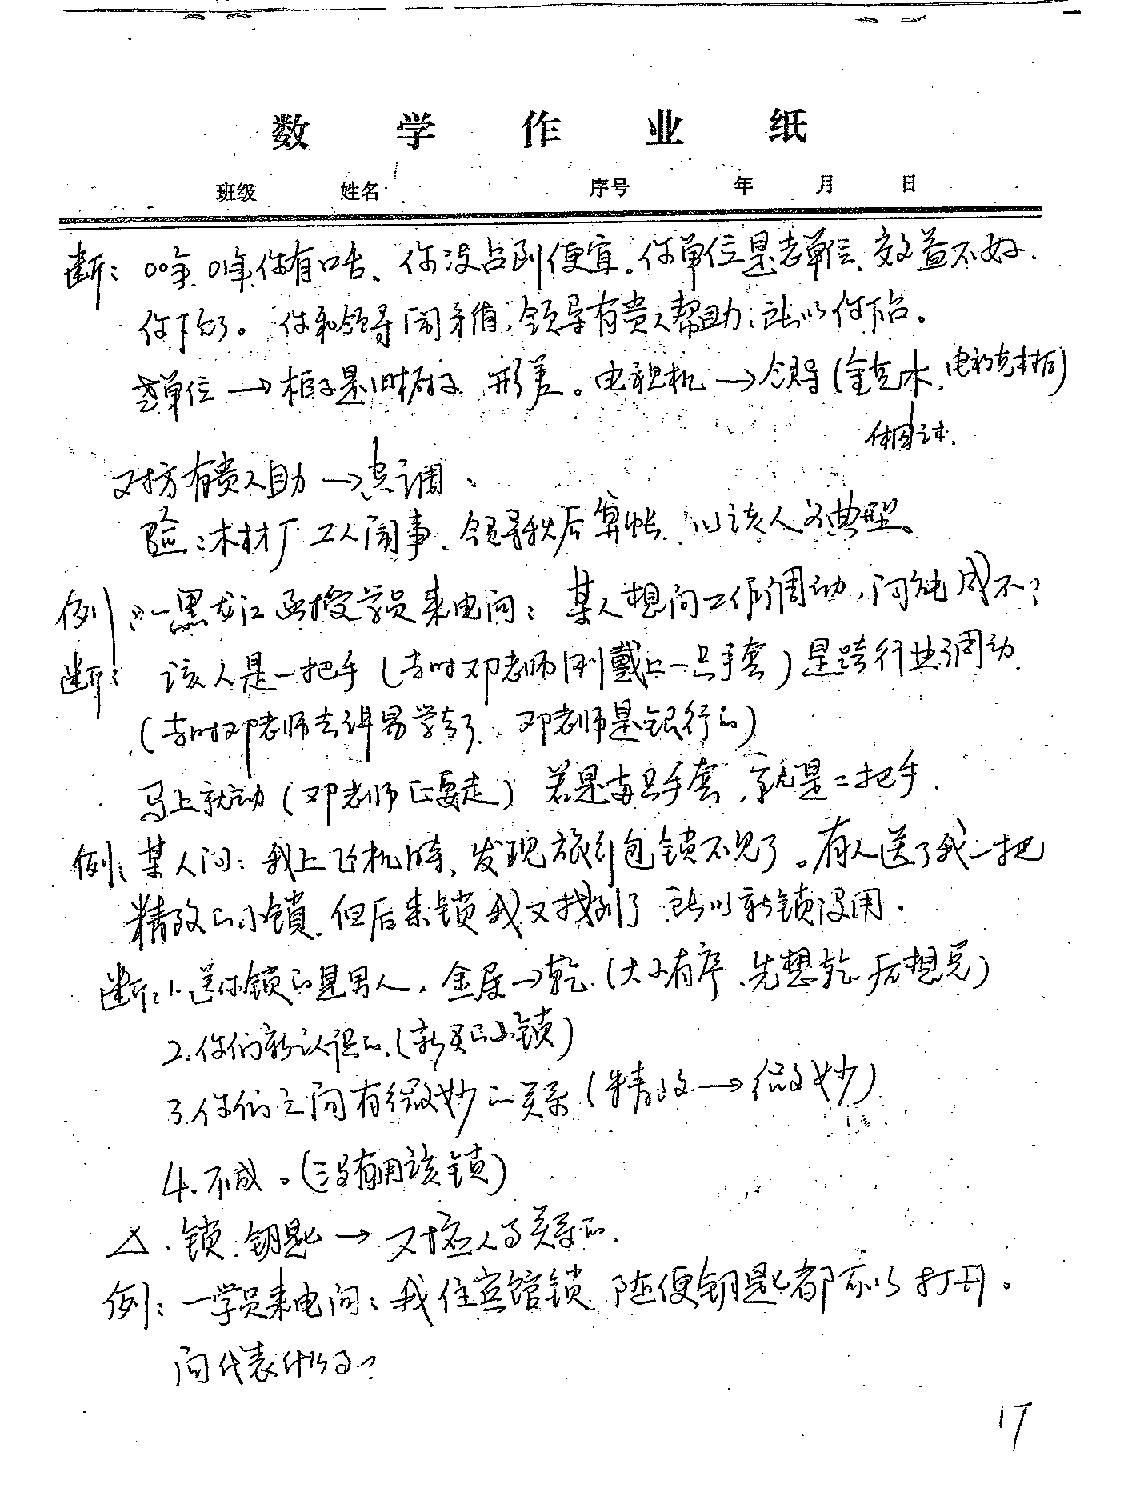 数学作业纸
班级 姓名 序号 年 月 日
断：00年 01年你有口舌、你没占到便宜。你单位是老单位、效益不好.
你下台了。你和领导闹矛盾，领导有贵人帮助，所以你下台。
老单位 → 柜子是旧柜子 形差。电视机 → 领导(金克木，电视克木柜)
体用之术.
对方有贵人助 → 空调。
验：木材厂工人闹事、领导秋后算帐、以该人为典型。
例：一黑龙江函授学员来电问：某人想问工作调动，问能成不？
断：该人是一把手(当时邓老师刚戴上一只手套)是跨行业调动.
(当时邓老师去讲易学去了、邓老师是银行的)
马上就动(邓老师正要走) 若是两只手套，就是二把手.
例：某人问：我上飞机时、发现旅行包锁不见了。有人送了我一把
精致的小锁，但后来锁我又找到了 所以新锁没用.
断：1、送你锁的是男人，金属→乾.(大小有序、先想乾后想兑)
2.你们新认识的.(新买的小锁)
3.你们之间有微妙的关系(精致→微妙)
4.不成。(没有用该锁)
△.锁.钥匙→对应人与关系的.
例：一学员来电问：我住宾馆锁 随便钥匙都可以打开。
问代表什么？
17